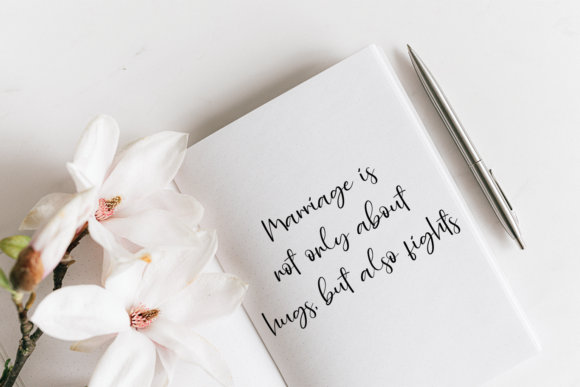 Marriage is
not only about
hugs, but also fights